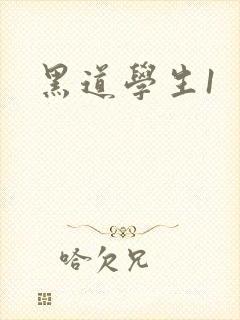 黑道學生1
哈欠兄